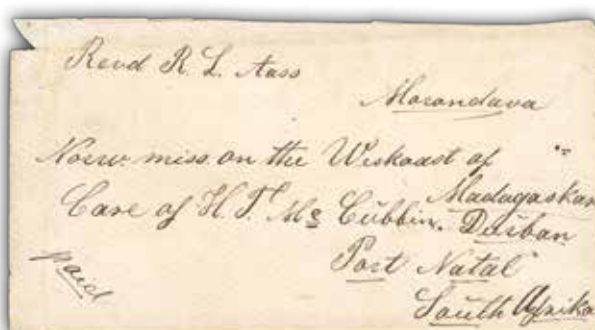 Revd R. L. Aass
Morondava
Norw. miss. on the Weskoast of
Madagaskar
Care of H. T. Mc Cübbin. Durban
Port Natal
South Afrika
paid